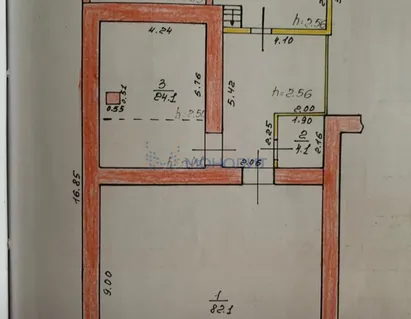 h=2.56
4.24
4.10
3
24.1
5.76
5.42
h=2.56
0.55
2.51
h=2.5
2.00
1.90
2.25
2
4.1
2.16
2.06
16.85
9.00
1
82.1